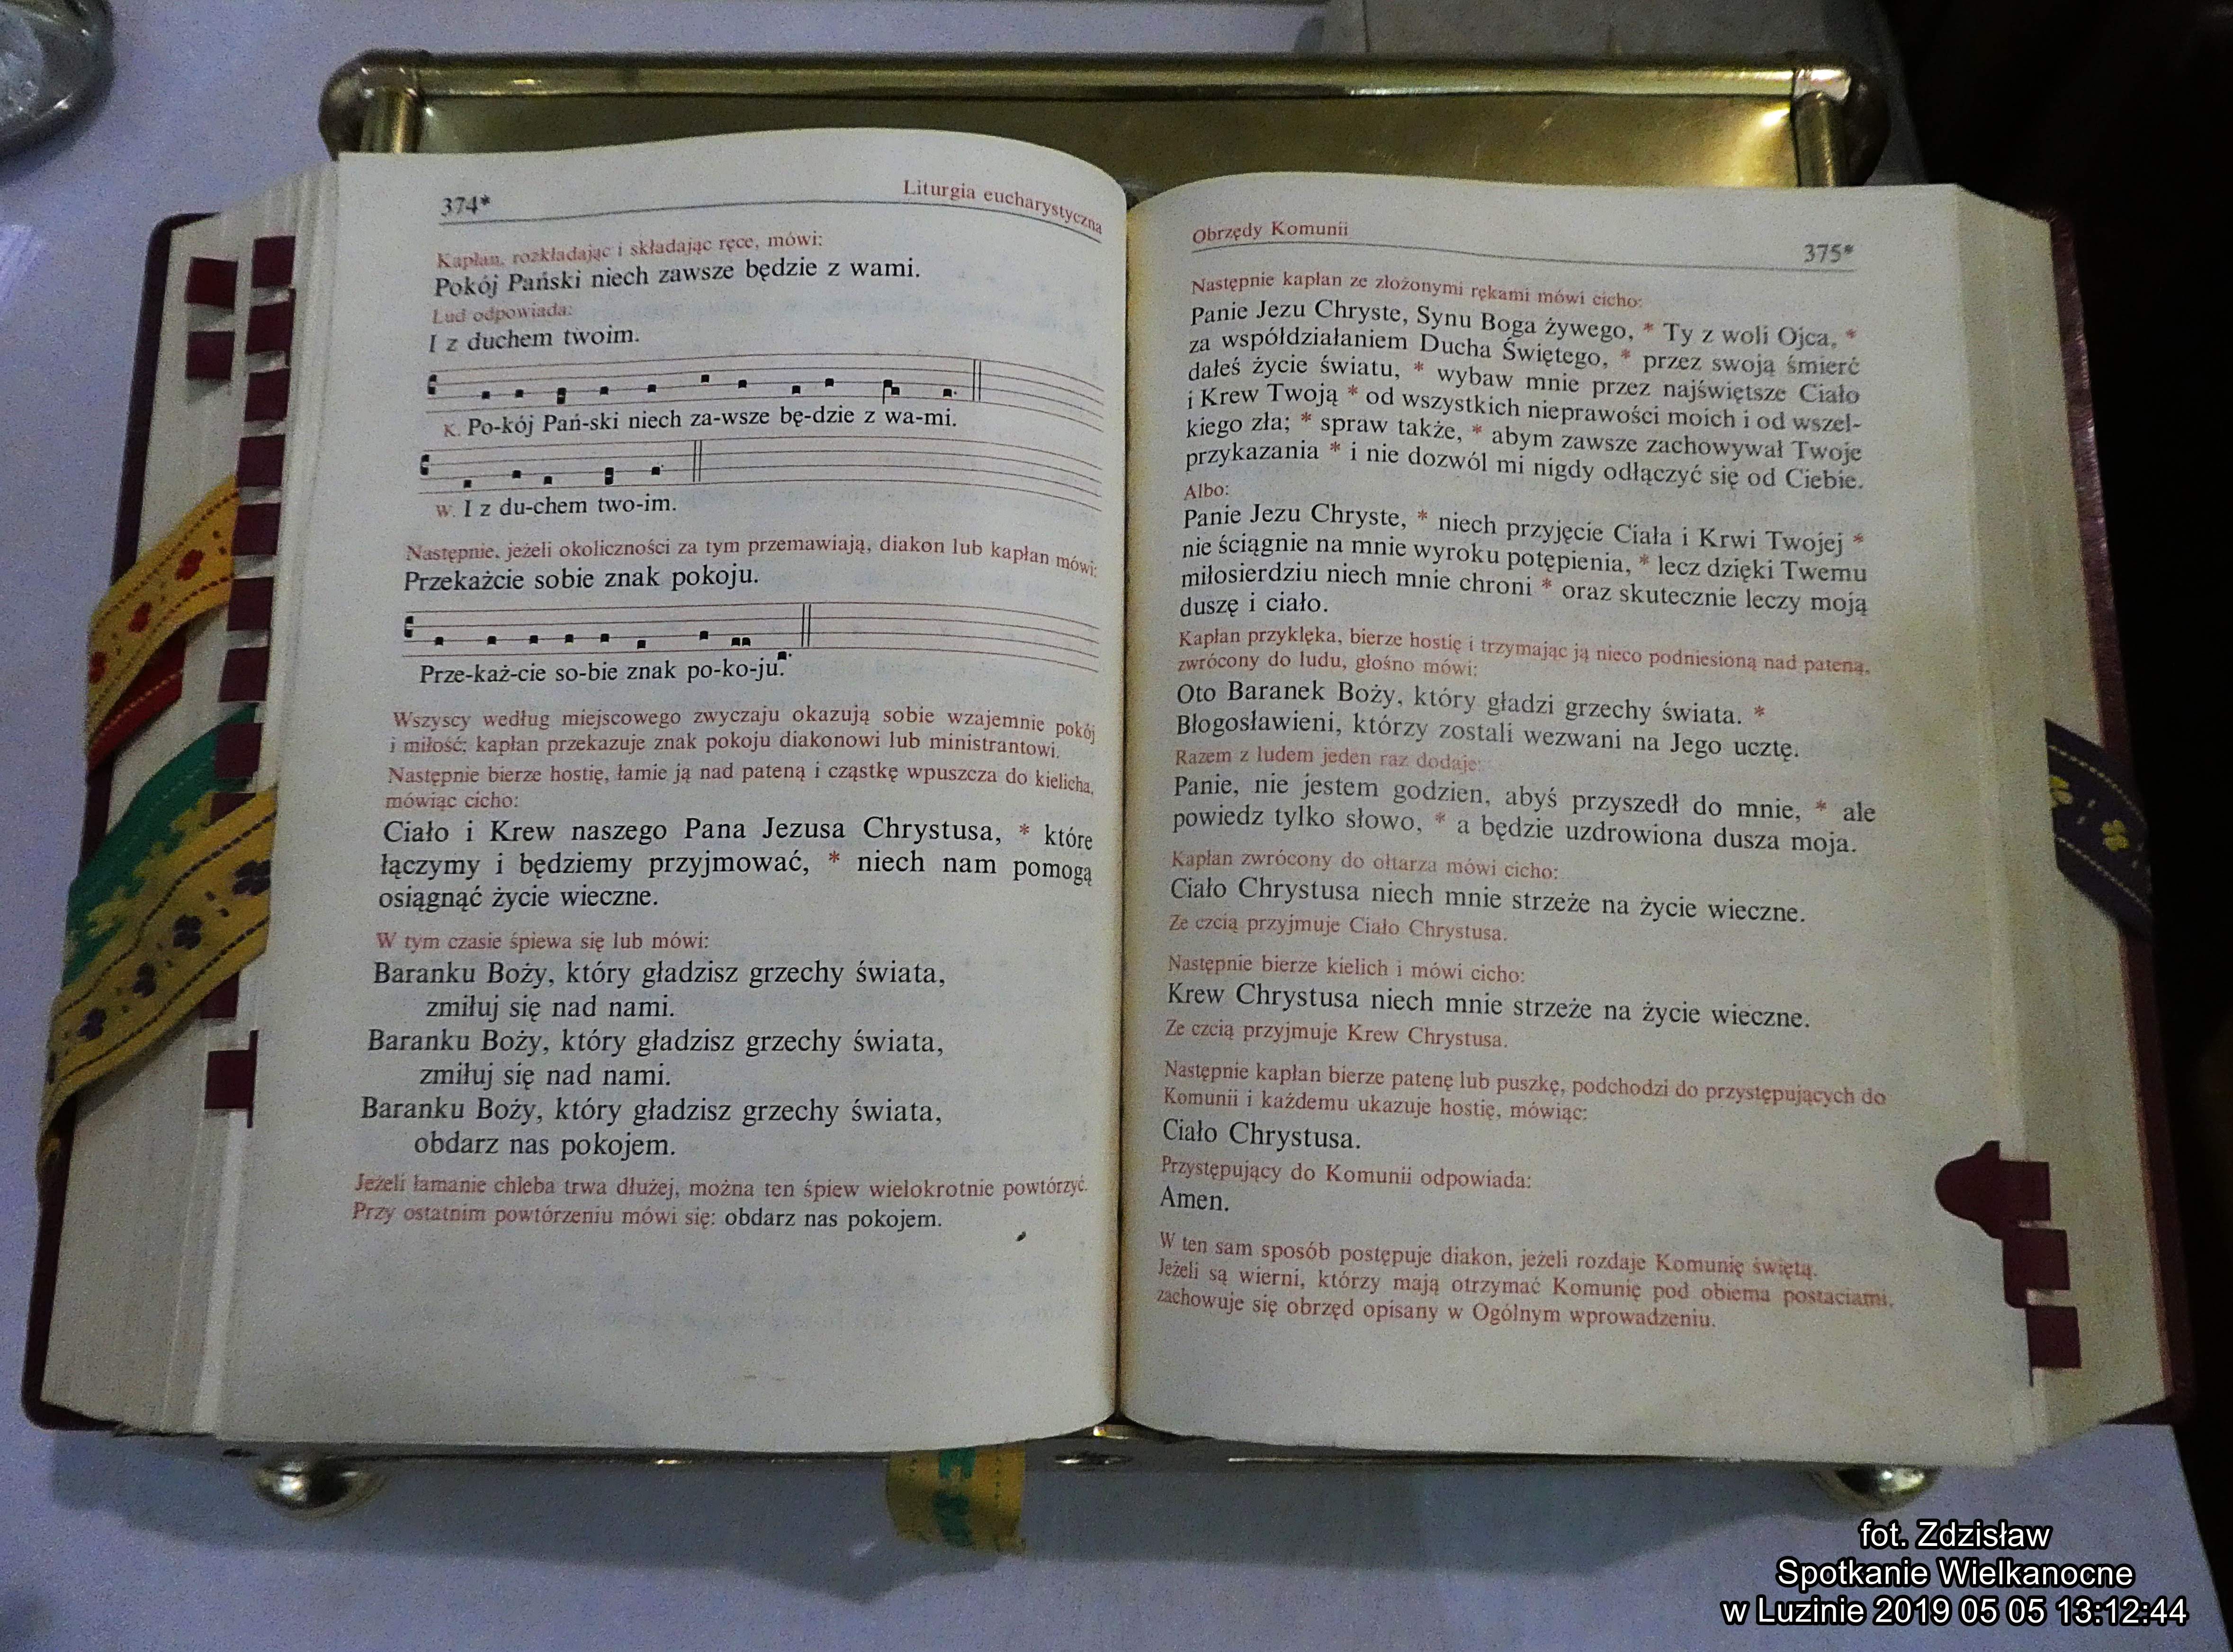 374*
Liturgia eucharystyczna
Kapłan, rozkładając i składając ręce, mówi:
Pokój Pański niech zawsze będzie z wami.
Lud odpowiada:
I z duchem twoim.
K. Po-kój Pań-ski niech za-wsze bę-dzie z wa-mi.
W. I z du-chem two-im.
Następnie, jeżeli okoliczności za tym przemawiają, diakon lub kapłan mówi:
Przekażcie sobie znak pokoju.
Prze-każ-cie so-bie znak po-ko-ju.
Wszyscy według miejscowego zwyczaju okazują sobie wzajemnie pokój
i miłość; kapłan przekazuje znak pokoju diakonowi lub ministrantowi.
Następnie bierze hostię, łamie ją nad pateną i cząstkę wpuszcza do kielicha,
mówiąc cicho:
Ciało i Krew naszego Pana Jezusa Chrystusa, * które
łączymy i będziemy przyjmować, * niech nam pomogą
osiągnąć życie wieczne.
W tym czasie śpiewa się lub mówi:
Baranku Boży, który gładzisz grzechy świata,
zmiłuj się nad nami.
Baranku Boży, który gładzisz grzechy świata,
zmiłuj się nad nami.
Baranku Boży, który gładzisz grzechy świata,
obdarz nas pokojem.
Jeżeli łamanie chleba trwa dłużej, można ten śpiew wielokrotnie powtórzyć.
Przy ostatnim powtórzeniu mówi się: obdarz nas pokojem.
Obrzędy Komunii
375*
Następnie kapłan ze złożonymi rękami mówi cicho:
Panie Jezu Chryste, Synu Boga żywego, * Ty z woli Ojca, *
za współdziałaniem Ducha Świętego, * przez swoją śmierć
dałeś życie światu, * wybaw mnie przez najświętsze Ciało
i Krew Twoją * od wszystkich nieprawości moich i od wszel-
kiego zła; * spraw także, * abym zawsze zachowywał Twoje
przykazania * i nie dozwól mi nigdy odłączyć się od Ciebie.
Albo:
Panie Jezu Chryste, * niech przyjęcie Ciała i Krwi Twojej *
nie ściągnie na mnie wyroku potępienia, * lecz dzięki Twemu
miłosierdziu niech mnie chroni * oraz skutecznie leczy moją
duszę i ciało.
Kapłan przyklęka, bierze hostię i trzymając ją nieco podniesioną nad pateną,
zwrócony do ludu, głośno mówi:
Oto Baranek Boży, który gładzi grzechy świata. *
Błogosławieni, którzy zostali wezwani na Jego ucztę.
Razem z ludem jeden raz dodaje:
Panie, nie jestem godzien, abyś przyszedł do mnie, * ale
powiedz tylko słowo, * a będzie uzdrowiona dusza moja.
Kapłan zwrócony do ołtarza mówi cicho:
Ciało Chrystusa niech mnie strzeże na życie wieczne.
Ze czcią przyjmuje Ciało Chrystusa.
Następnie bierze kielich i mówi cicho:
Krew Chrystusa niech mnie strzeże na życie wieczne.
Ze czcią przyjmuje Krew Chrystusa.
Następnie kapłan bierze patenę lub puszkę, podchodzi do przystępujących do
Komunii i każdemu ukazuje hostię, mówiąc:
Ciało Chrystusa.
Przystępujący do Komunii odpowiada:
Amen.
W ten sam sposób postępuje diakon, jeżeli rozdaje Komunię świętą.
Jeżeli są wierni, którzy mają otrzymać Komunię pod obiema postaciami,
zachowuje się obrzęd opisany w Ogólnym wprowadzeniu.
fot. Zdzisław
Spotkanie Wielkanocne
w Luzinie 2019 05 05 13:12:44